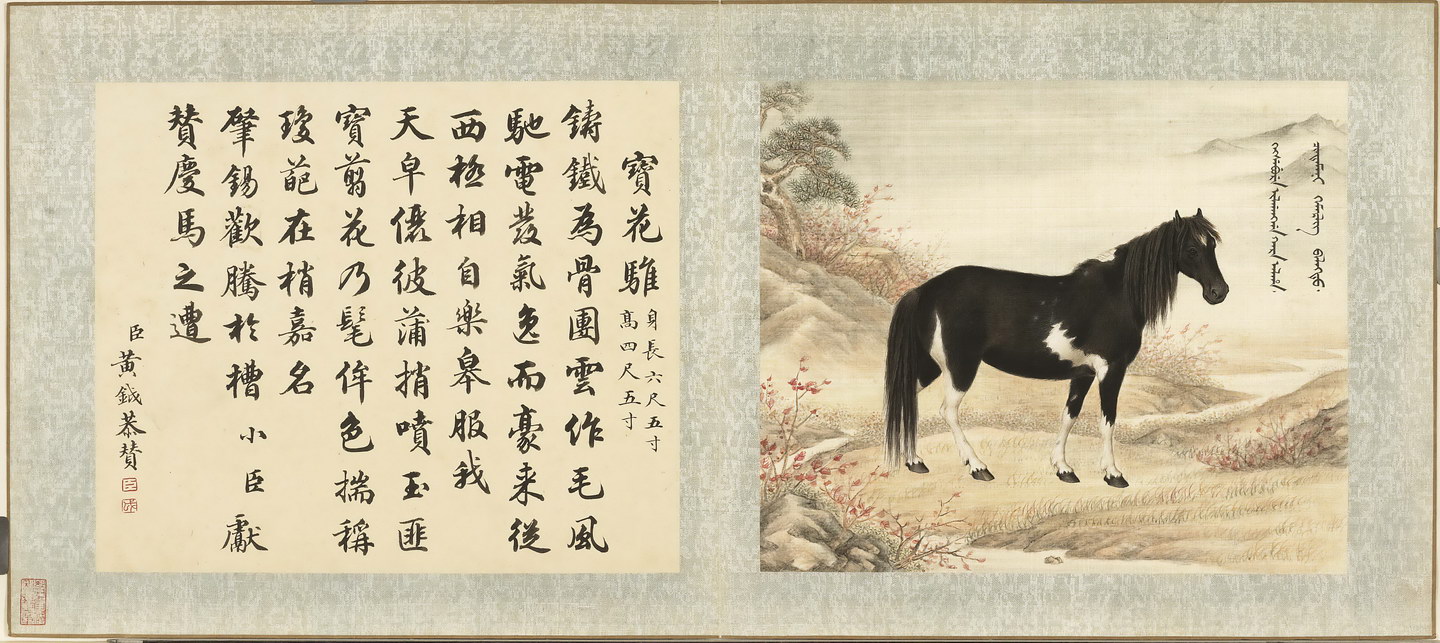 寶花騅
身長六尺五寸
高四尺五寸
鑄鐵為骨團雲作毛風
馳電發氣逸而豪来從
西極相自樂皋服我
天皁彼蒲捎噴玉匪
寶翦花乃髦侔色揣稱
瓊葩在梢嘉名
肇錫歡騰於槽小臣獻
贊慶馬之遭
臣黃鉞恭贊